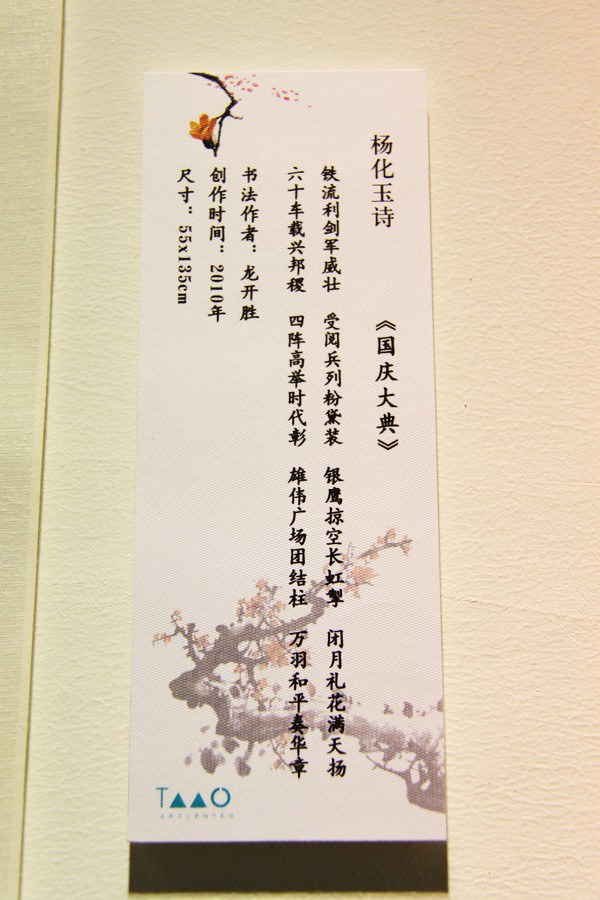 杨化玉诗 《国庆大典》
铁流利剑军威壮 受阅兵列粉黛装 银鹰掠空长虹掣 闭月礼花满天扬
六十车载兴邦稷 四阵高举时代彰 雄伟广场团结柱 万羽和平奏华章
书法作者：龙开胜
创作时间：2010年
尺寸：55x135cm
TAAO
ARTCENTER